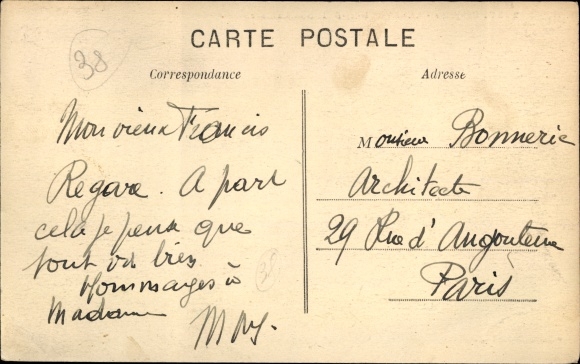 38
CARTE POSTALE
Correspondance
Adresse
Mon vieux Francis
Regare. A part
cela je peux que
tout va bien
Hommages à
Madame
Monsieur Bonnerie
Architecte
29 Rue d'Angoulême
Paris
38